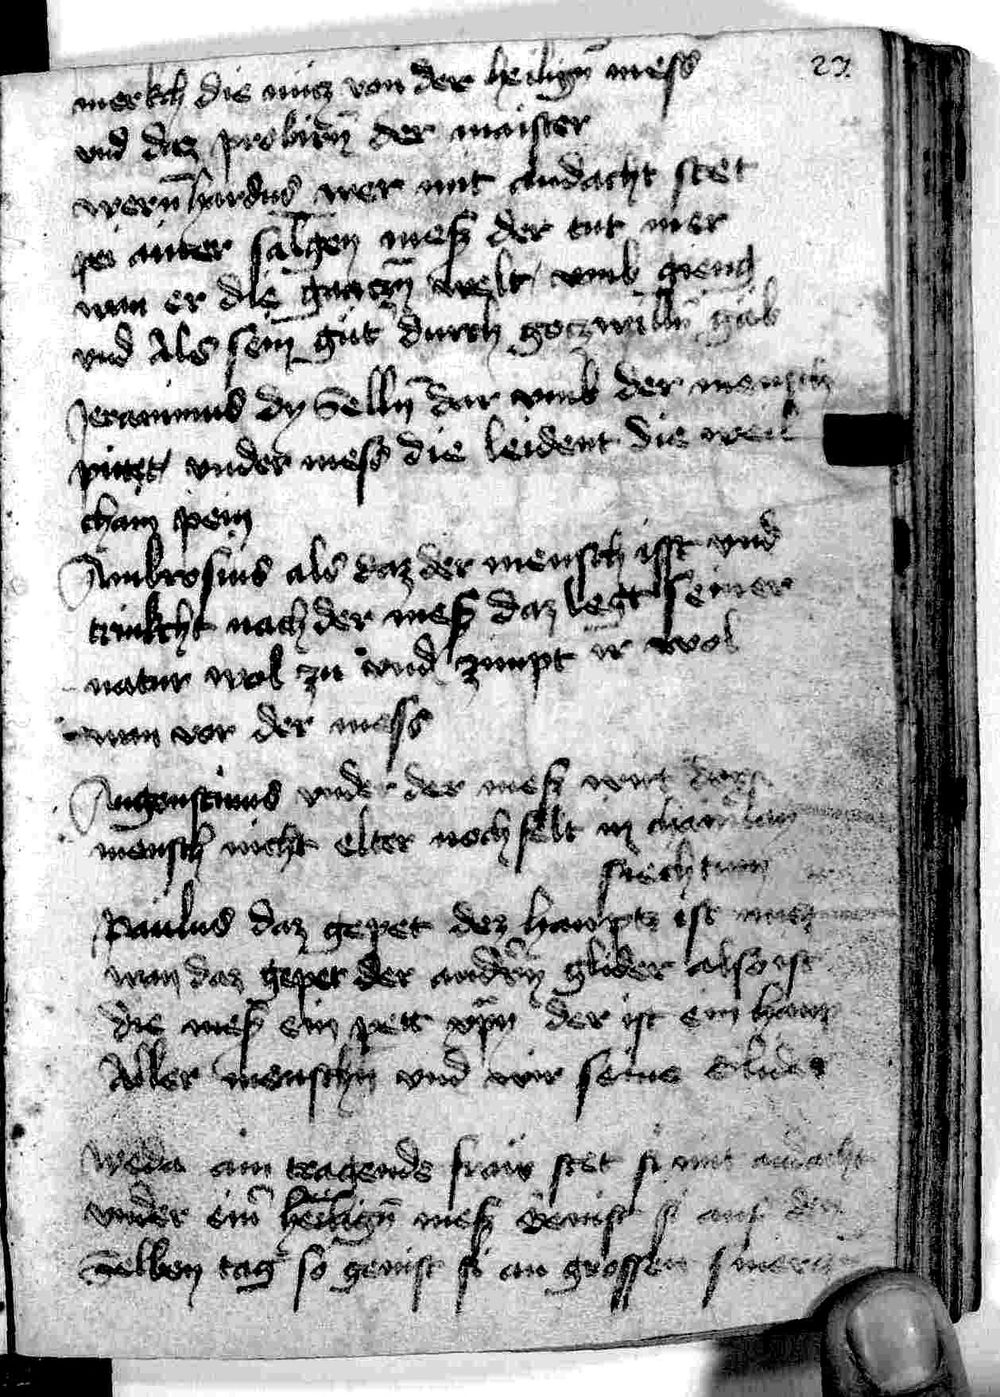 23.
merkch die nucz von der heilign̄ mess
vnd daz probirn̄ der maister
wern̄hardus wer mit andacht stet
pei ainer salgen mess der tut mer
wan er die ganczn̄ welt vmb gieng
vnd Als sein gut durch gotz willn̄ gäb
Jeranimus dy Selln̄ dar vmb der mensch
pittet vnder mess die leident die weil
chain pein
Ambrosius als daz der mensch isst vnd
trinkcht nach der mess daz legt seiner
natur wol zu vnd zimpt ir wol
wan vor der mess
Augustinus vnder der mess wirt der
mensch nicht elter noch felt in chainlay
siechtum
Paulus daz gepet dez haupts ist
wan daz gepet der andern̄ glider also ist
die mess ein pett xp̄n der ist ein haup
Aller menschn̄ vnd wir seine glider
Weda ain tragende fraw stet si mit andacht
vnder ein̄ heilign̄ mess Genist si auf den
Selben tag so genist si an grossen smercz